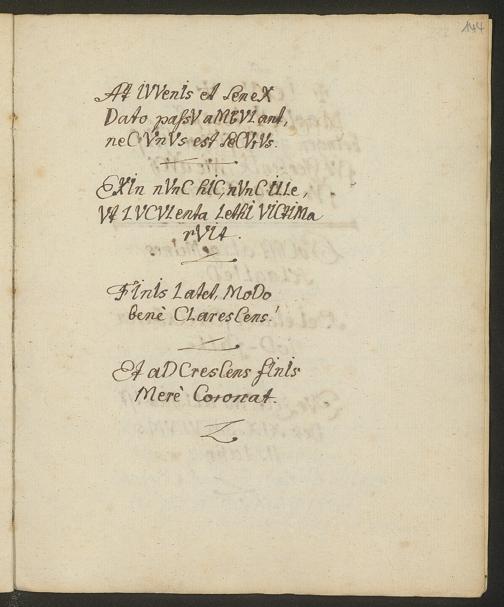 144
At iVVenIs et seneX
Dato passV aMbVLant,
neC VnVs est seCVrVs.
EXIn nVnC hIC, nVnC ILLe,
Vt LVCVLenta Lethi VICtIMa
rVIt.
FInIs Latet, MoDo
benè CLaresCens!
Et aDCresCens fInIs
Merè Coronat.